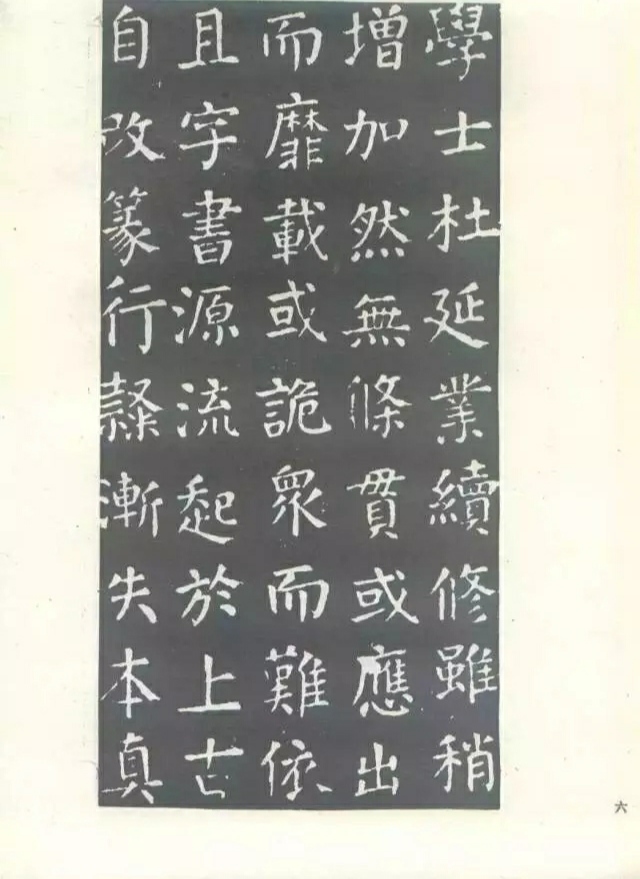 學士杜延業續修雖稍
增加然無條貫或應出
而靡載或詭眾而難依
且字書源流起於上古
自改篆行隸漸失本真
六